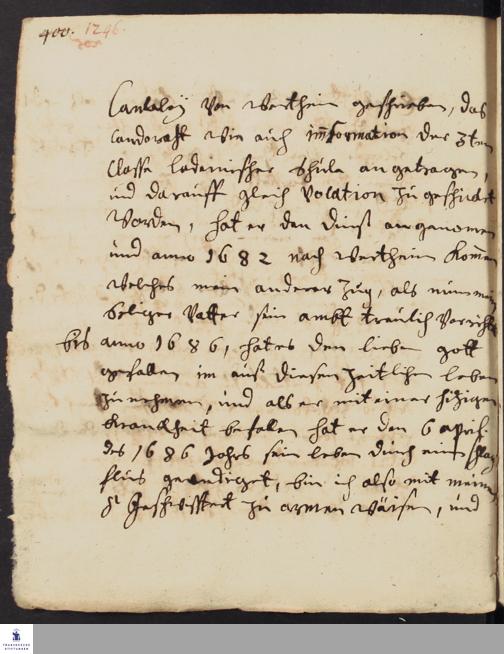 400. 1246.
Cantzley von Wertheim geschrieben, das
Cantorath wie auch imformation der 3ten
Classe lateinischer Schule angetragen,
und darauff gleich Vocation zugeschickt
worden, hat er den dinst angenomen
und anno 1682 nach Wertheim komen
welches mein anderer Zug, als nun mein
Seeliger Vatter sein ambt treulich verricht
bis anno 1686, hat es den lieben gott
gefallen im aus diesen zeitlichen leben
zu nehmen, und als er mit einer hizigen
Kranckheit befallen hat er den 6 april.
des 1686 Jahrs sein leben durch ein
flus geendiget, bin ich also mit meinen
Geschwistert zu armen Wäisen, und
FRANCKESCHE
STIFTUNGEN